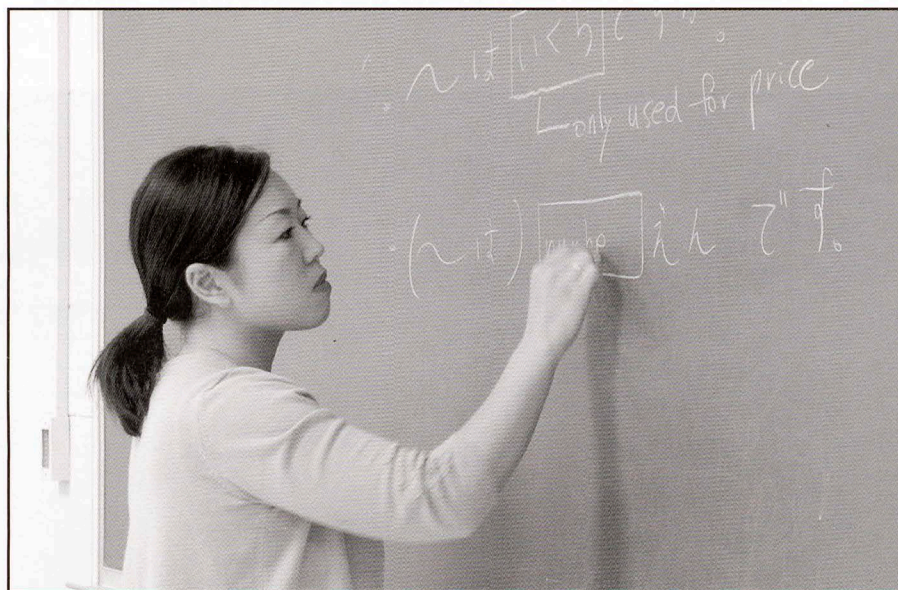 ~は いくら です。
only used for price
(~は) numbe えん です。